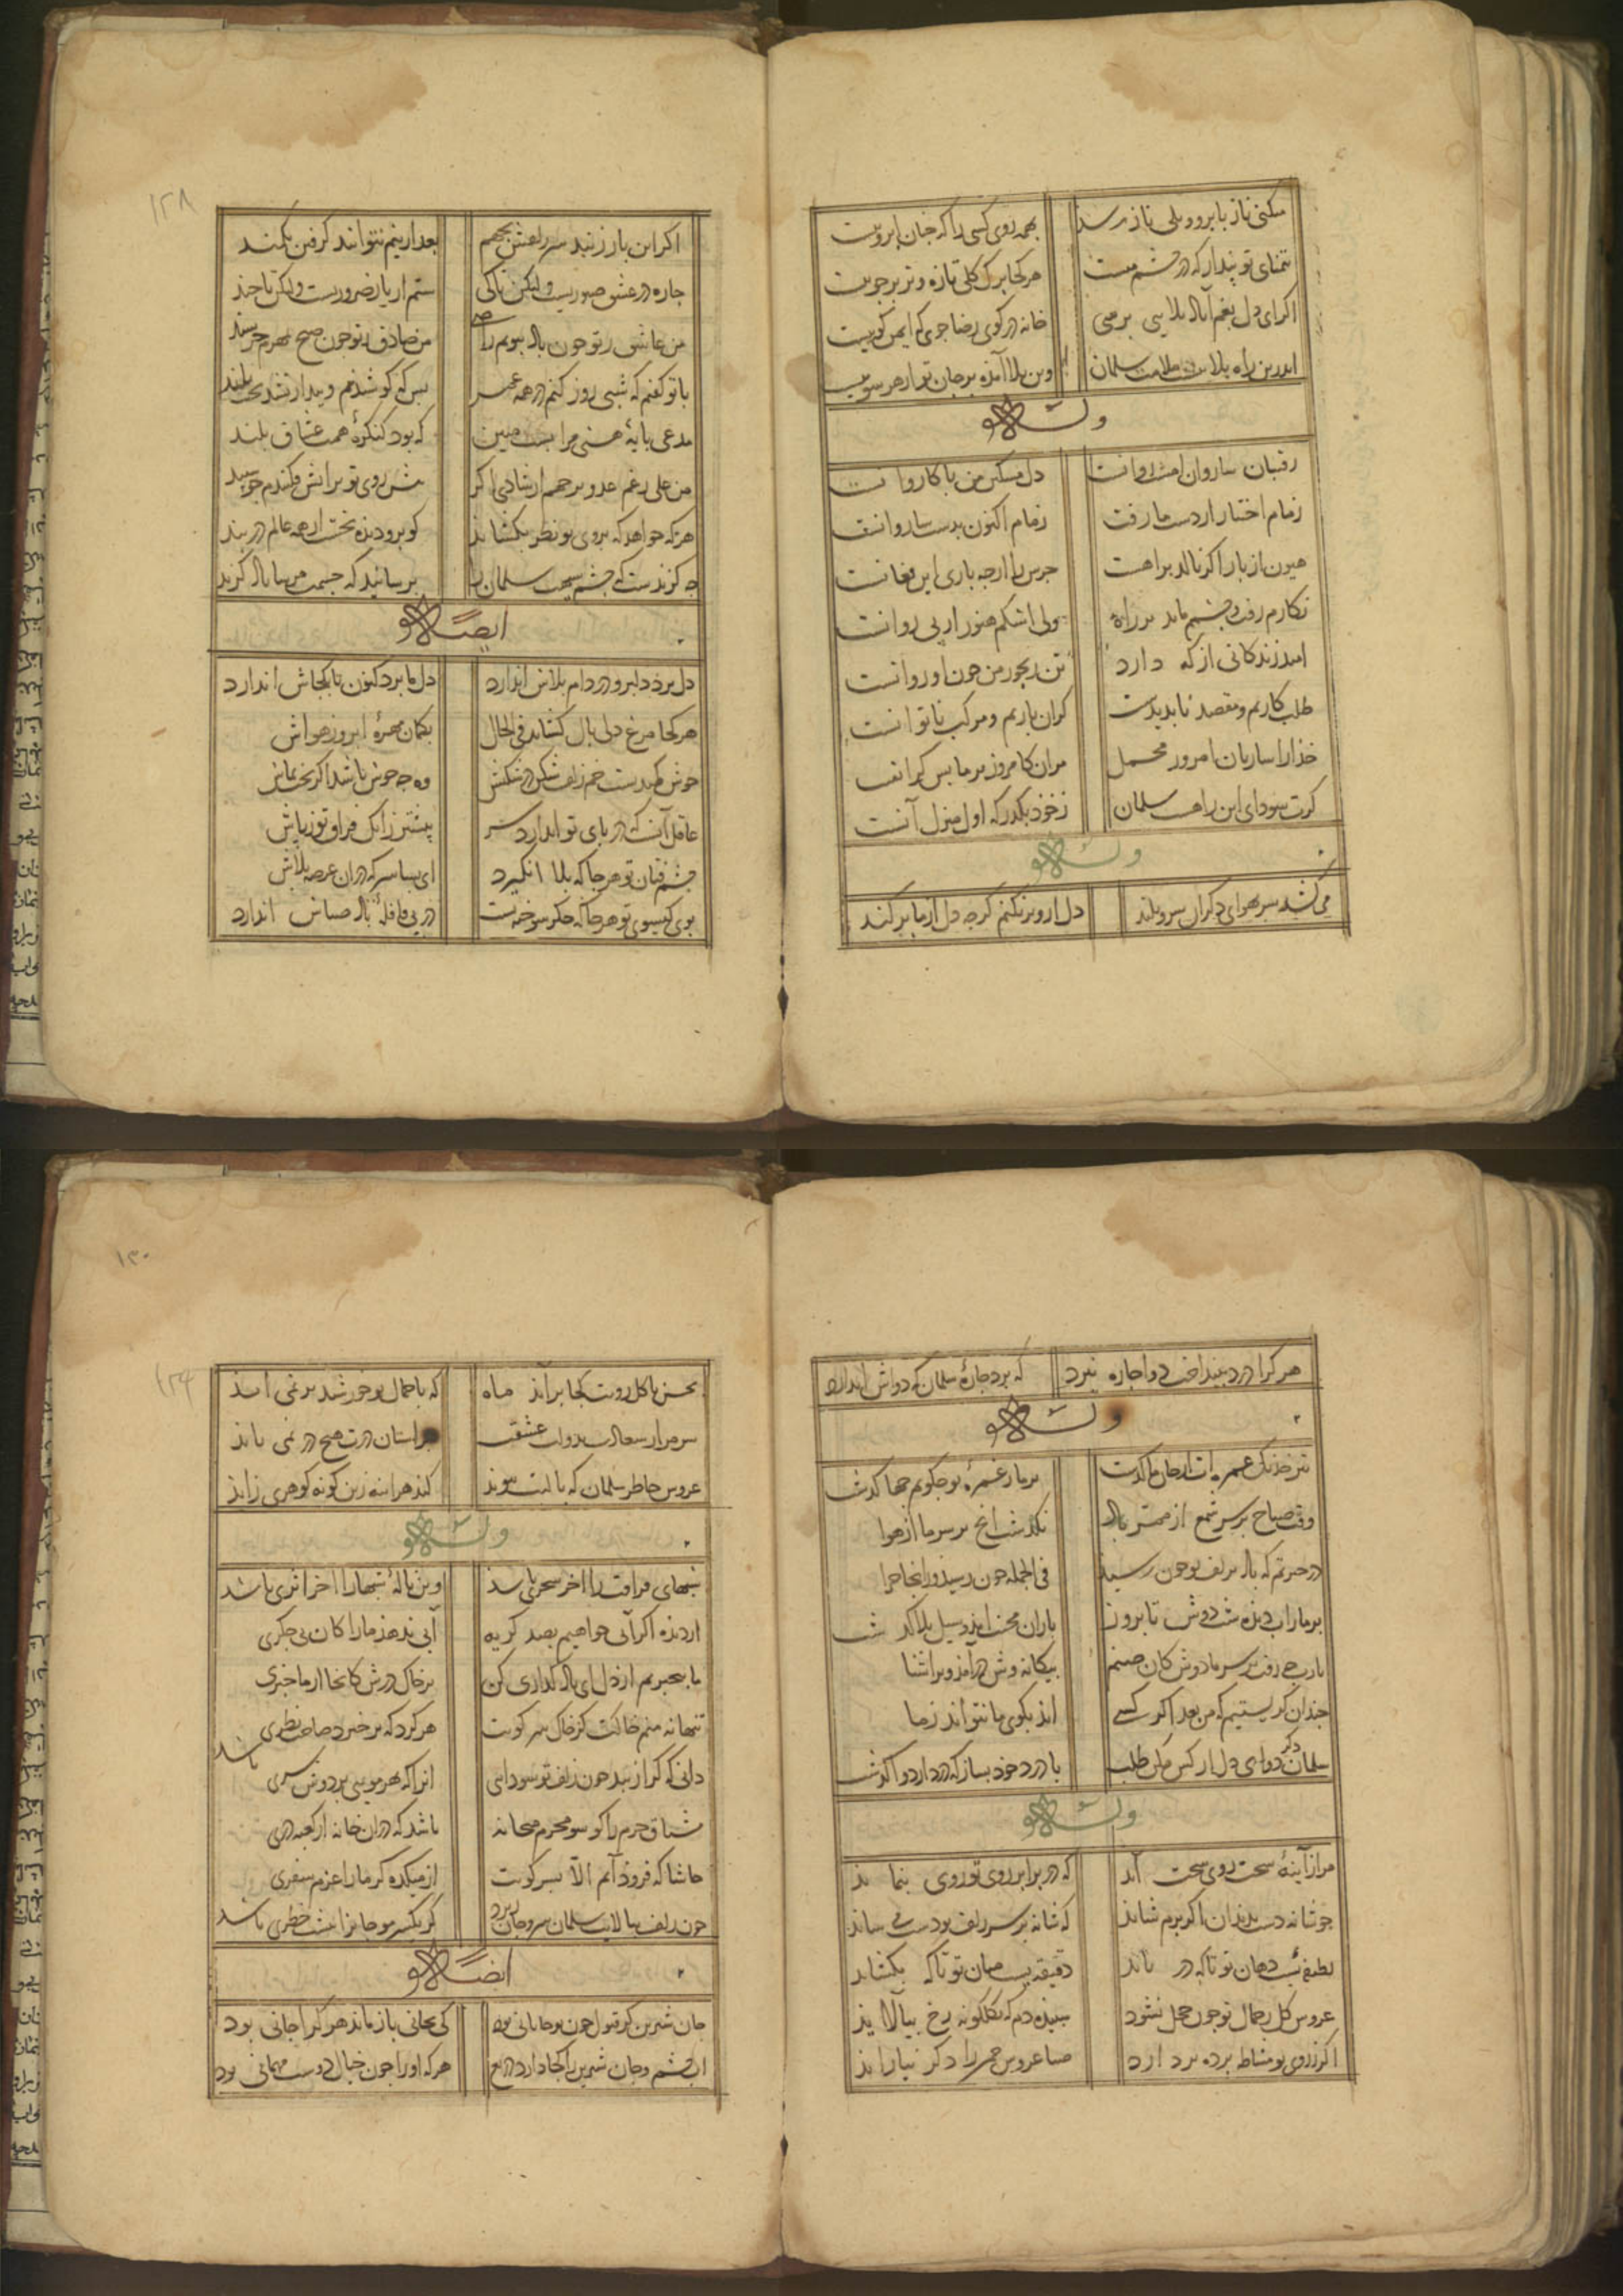 میکنی ناز بابرو و بلی ناز رسد بهمه روی کسی را که چنان ابرویست
تمنای تو پندار که در چشم منست هر کجا برک کلی تازه و تر بر جویست
اکر ای دل بغم آباد بلایی برسی خانه در کوی رضا جوی که ایمن کویست
اندرین راه بلا ملامت سلمان وین بلا آمده بر جان تو از هر سویست
وله
رفیقان ساروان امشب روانست دل مسکین من با کاروانست
زمام اختیار از دست ما رفت زمام اکنون بدست ساروانست
هیون از بار اکر نالد براهت جرس را از چه باری این فغانست
نکارم رفت و چشم ماند بر راه ولی اشکم هنوز از پی روانست
امید زندکانی از که دارد تن رنجور من چون او روانست
طلب کاریم و مقصد ناپدیدست کران باریم و مرکب ناتوانست
خدا را ساربان امروز محمل مران کامروز بر ما بس کرانست
کرت سودای این راهست سلمان ز خود بگذر که اول منزل آنست
وله
می کشد سر بهوای دکران سرو بلند دل ازو بر نکنم کرچه دل از ما برکند
۱۲۸
اکر این بار زند سر بعد ازینم نتوانند کرفتن بکمند
چاره در عشق صبوریست ولیکن تا کی ستم از یار ضروریست ولیکن تا چند
من عاشق ز تو چون باد ببویم راضی من صادق ز تو چون صبح بمهرم خرسند
با تو کفتم که شبی روز کنم در همه عمر بس که کوشیدم و بیدار نشد بخت بلند
مدعی پایهٔ هستی مرا پست مبین که بود کنکرهٔ همت عشاق بلند
من علی رغم عدو بر جهم از شادی اکر پیش روی تو بر آتش فکنندم چو سپند
هر که خواهد که بروی تو نظر بکشاید کو برو دیده نخست از همه عالم در بند
چه کزندست که چشم سلمان را برسانید که چشمت مرساناد کزند
ایضا له
دل برد دلبر و در دام بلاش اندازد دل ما برد کنون تا بکجاش اندازد
هر کجا مرغ دلی بال کشاید فی الحال بکمان مهرهٔ ابرو ز هواش
خوش کمندیست خم زلف شکن در شکنش وه چه خوش باشد اکر بخت بماش
عاقل آنست که در پای تو اندازد سر پیشتر زانک فراق تو ز پاش
چشم فتان تو هر جا که بلا انکیزد ای بسا سر که در آن عرصه بلاش
بوی کیسوی تو هر جا که جکر سوخته ایست در پی قافلهٔ باد صباش اندازد
هر کرا درد بینداخت دوا چاره نبرد که برد چارهٔ سلمان که دواش اندازد
وله
تیر خدنک غمزه ات از جان ما کذشت بر ما ز غمزهٔ تو چکویم چها کذشت
وقت صباح بر سر شمع از ممر باد نکذشت آنچ بر سر ما از هوا
در حیرتم که باد بزلف تو چون رسید فی الجمله چون رسید و زانجا چرا
بر ما ز آب دیده شب دوش تا بروز باران محنت آمد و سیل بلا کذشت
یارب چه رفت بر سر ما دوش کان صنم بیکانه وش درآمد و بر آشنا
چندان کریستیم که من بعد اکر کسی آید بکوی ما نتواند ز ما
سلمان دکر دوای دل از کس مکن طلب با درد خود بساز که درد از دوا کذشت
وله
مرا ز آینهٔ سخت روی سخت آید که در برابر روی تو روی بنماید
چو شانه دست بدندان اکر برم شاید که شانه بر سر زلف تو دست می ساید
لطیفه ایست دهان تو تا که دریابد دقیقه ایست میان تو تا که بکشاید
عروس کل ز جمال تو چون خجل نشود سپیده دم که بکلکونه رخ بیالاید
اکر ز روی تو مشاطه پرده بردارد صبا عروس چمن را دکر نیاراید
۱۳۰
۱۲۹
بحسن با کل رویت کجا برآید ماه که با جمال تو خورشید بر نمی آید
سر مرا ز سعادت بدولت عشقت بر آستان درت هیچ در نمی باید
عروس خاطر سلمان که با لبت پیوند کند هر آینه زین کونه کوهری زاید
وله
شبهای فراقت را آخر سحری باشد وین نالهٔ شبها را آخر اثری باشد
از دیده اکر آبی خواهیم بصد کریه آبی ندهد ما را کان بی جکری
ما بیخبریم از دل ای باد کذاری کن بر خاک درش کانجا از ما خبری
تنها نه منم خاکت کز خاک سر کویت هر کرد که برخیزد صاحب نظری باشد
دانی که کرا زیبد چون زلف تو سودایی آنرا که بهر مویی بر دوش سری
مشتاق حرم را کو سو محرم میخانه باشد که در آن خانه از کعبه دری
حاشا که فرود آیم الا بسر کویت از میکده کر ما را عزم سفری
چون زلف ببالایت سلمان سر و جان ریزد کر یکسر مو جانرا پیشت خطری باشد
ایضا له
جان شیرین کر قبول چون تو جانانی بود کی بجانی باز ماند هر کرا جانی بود
آب چشم و جان شیرین را کجا دارد دریغ هر که او را چون خیال دوست مهمانی بود